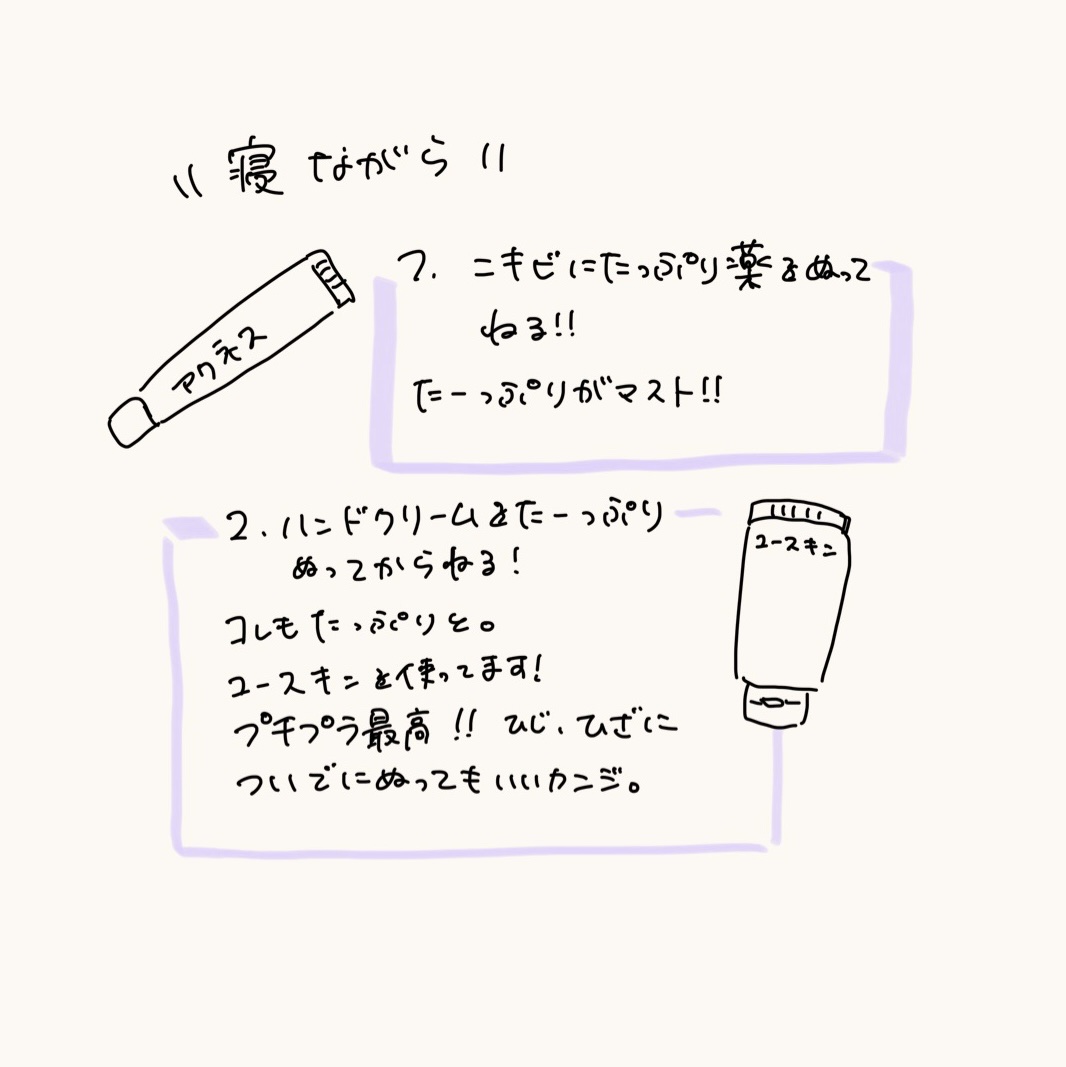 寝ながら
1. ニキビにたっぷり薬をぬって
ねる!!
たーっぷりがマスト!!
アクネス
2. ハンドクリームをたーっぷり
ぬってからねる!
コレもたっぷりと。
ユースキンを使ってます!
プチプラ最高!! ひじ、ひざに
ついでにぬってもいいカンジ。
ユースキン